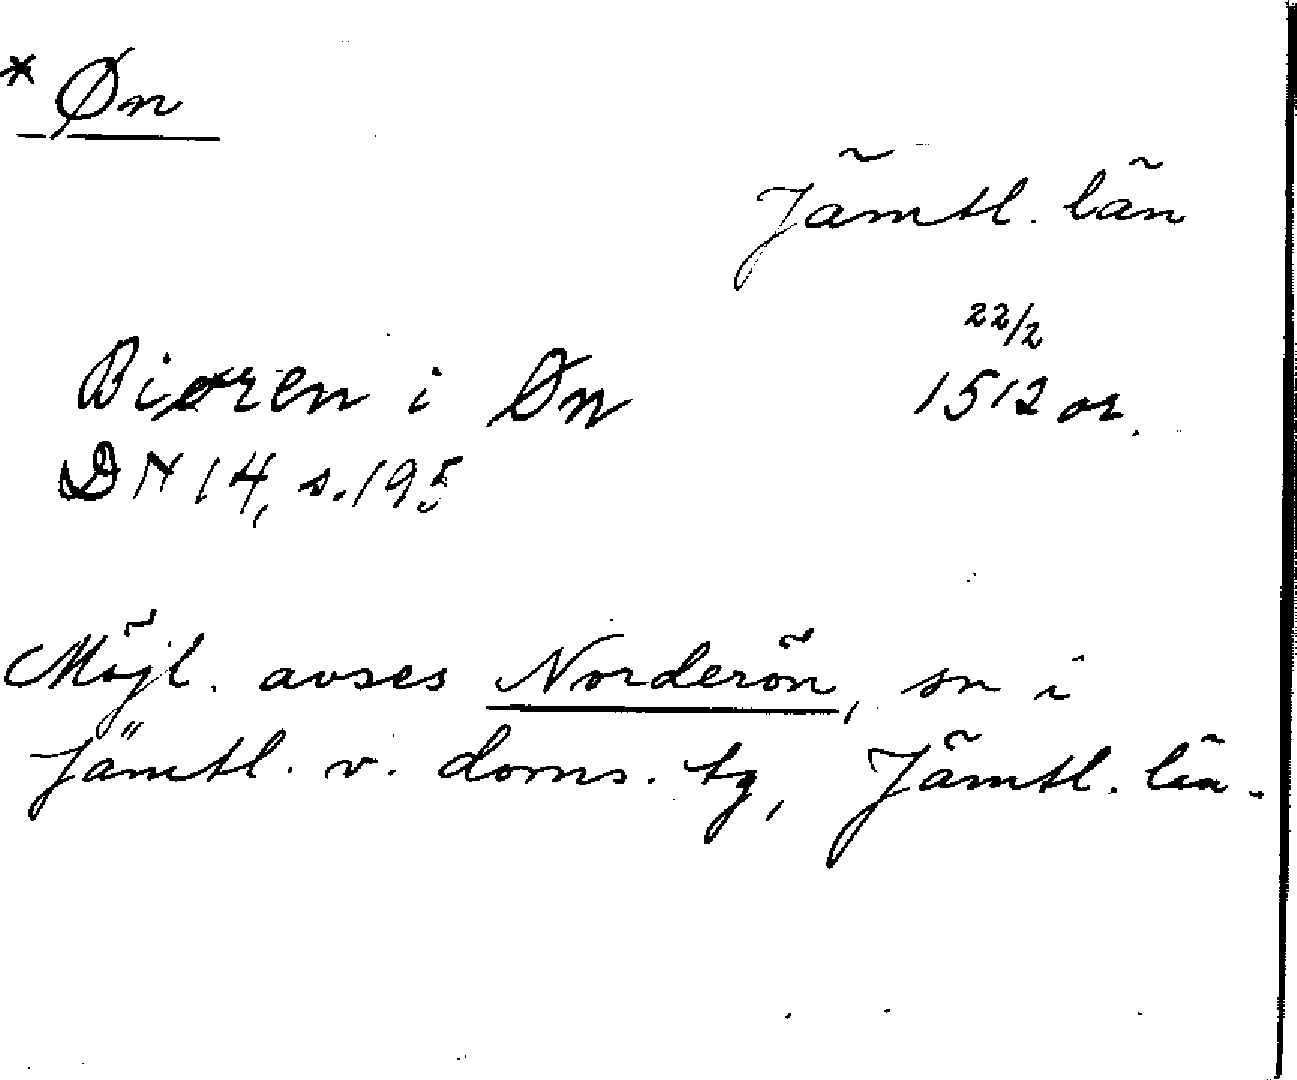 * Øn
Jämtl. län
Biøren i Øn
22/2
1512 or.
DN 14, s. 195
Möjl. avses Norderön, sn i
Jämtl. v. doms. tg, Jämtl. län.